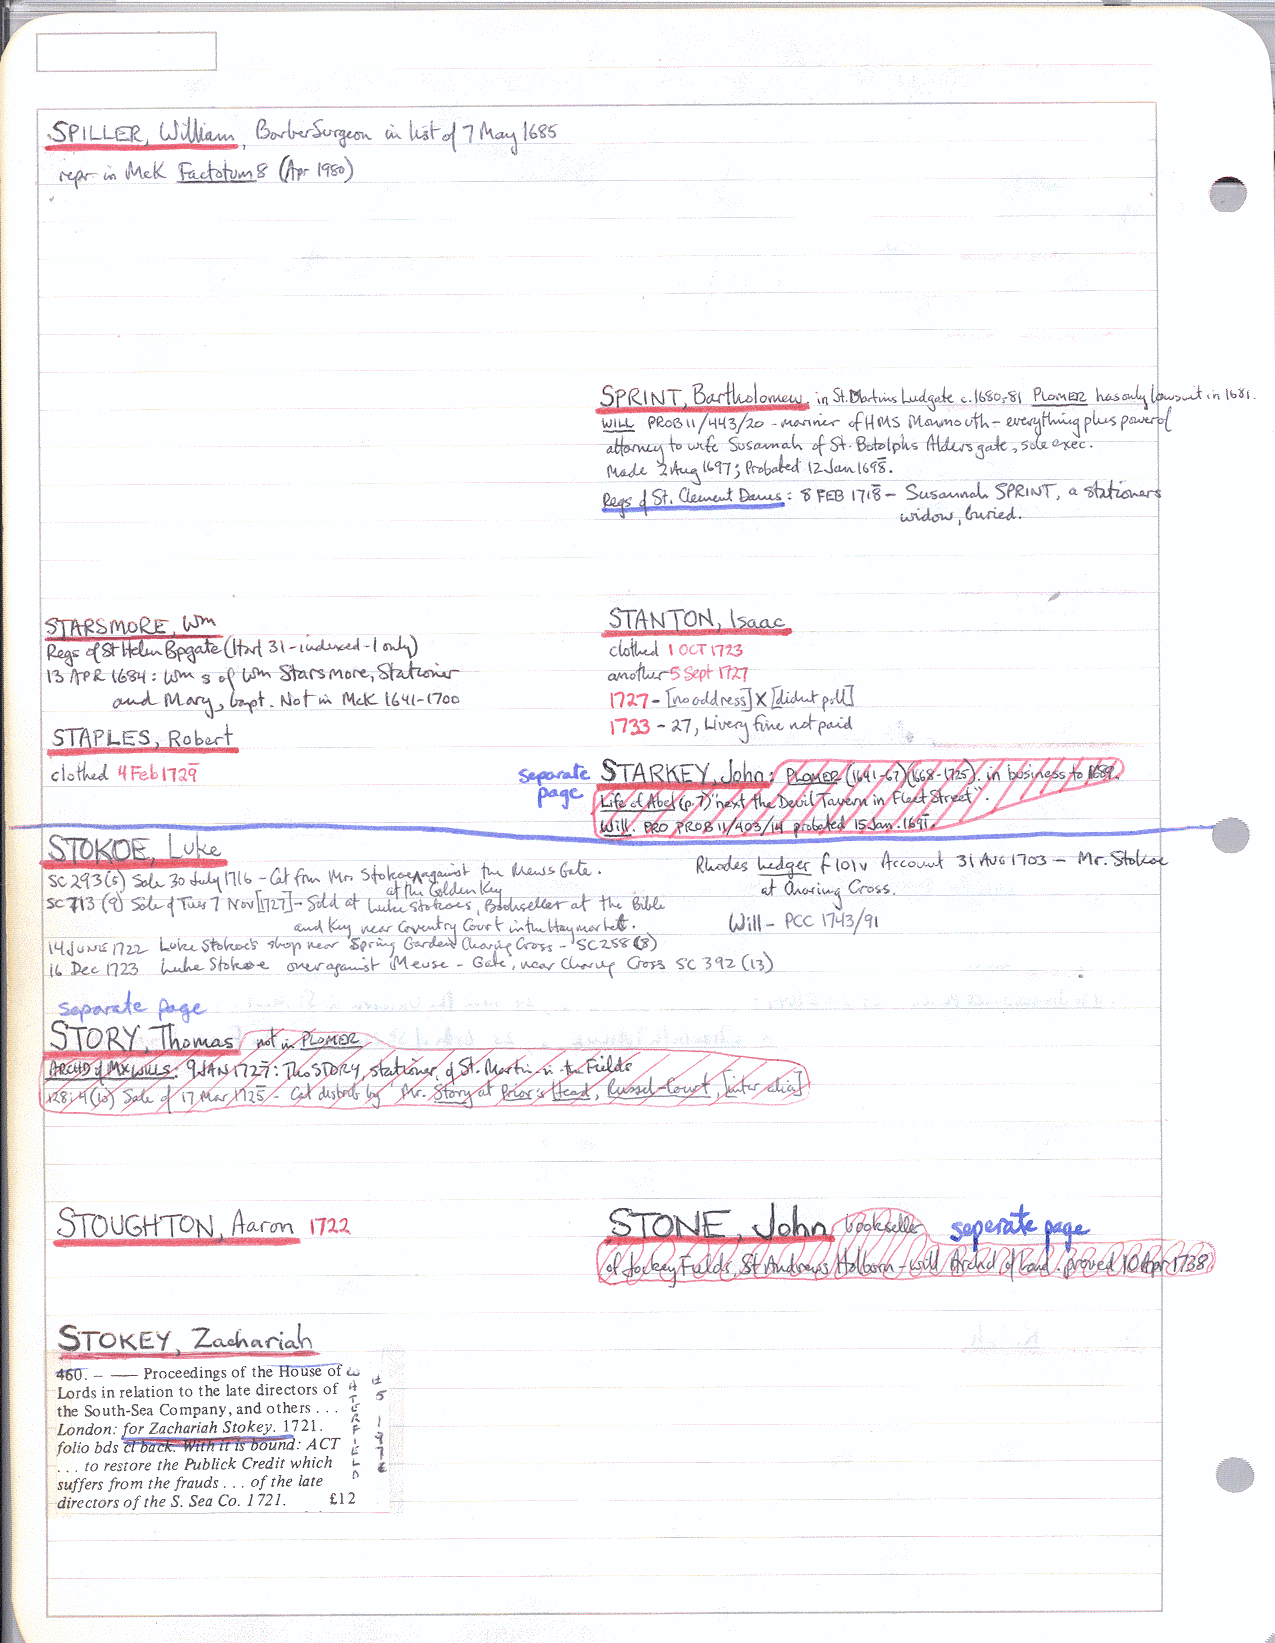 SPILLER, William, BarberSurgeon in list of 7 May 1685
repr in McK Factotum 8 (Apr 1980)
SPRINT, Bartholomew. in St. Martins Ludgate c.1680-81 PLOMER has only lawsuit in 1681.
WILL PROB 11/443/20 - mariner of HMS Monmouth - everything plus power of
attorney to wife Susannah of St. Botolphs Aldersgate, sole exec.
Made 2 Aug 1697; Probated 12 Jan 1698.
Regs of St. Clement Danes: 8 FEB 1718 - Susannah SPRINT, a stationers
widow, buried.
STARSMORE, Wm
Regs of St Helen Bpgate (Harl 31 - indexed - 1 only)
13 APR 1684: Wm s of Wm Starsmore, Stationer
and Mary, bapt. Not in McK 1641-1700
STAPLES, Robert
clothed 4 Feb 1729
STANTON, Isaac
clothed 1 OCT 1723
another 5 Sept 1727
1727 - [no address] X [didnt poll]
1733 - 27, Livery fine not paid
separate
page
STARKEY, John: PLOMER (1641-67) (1668-1725). in business to 1689.
Life of Abel (p.7) "next the Devil Tavern in Fleet Street".
Will. PRO PROB 11/403/14 probated 15 Jan. 1691.
STOKOE, Luke
SC 293(5) Sale 30 July 1716 - Cat from Mr. Stokoe against the Mews Gate.
at the Golden Key
SC 713 (9) Sale of Tues 7 Nov [1727] - Sold at Luke Stokoes, Bookseller at the Bible
and Key near Coventry Court in the Haymarket.
14 JUNE 1722 Luke Stokoe's shop near Spring Garden Charing Cross - SC 258 (8)
16 Dec 1723 Luke Stokoe over against Meuse - Gate, near Charing Cross SC 392 (13)
Rhodes Ledger f 101v Account 31 AUG 1703 - Mr. Stokoe
at Charing Cross.
Will - PCC 1743/91
separate page
STORY, Thomas not in PLOMER
ARCHD of MX WILLS: 9 JAN 1727: Tho STORY, stationer, of St. Martin in the Fields
128; 4(10) Sale of 17 Mar 1725 - Cat distrib by Mr. Story at Prior's Head, Russel-Court, [inter alia]
STOUGHTON, Aaron 1722
STONE, John bookseller
seperate page
of Jockey Fields, St Andrews Holborn - will Archd of Lond. proved 10 Apr 1738
STOKEY, Zachariah
460. - — Proceedings of the House of
Lords in relation to the late directors of
the South-Sea Company, and others . . .
London: for Zachariah Stokey. 1721.
folio bds cl back. With it is bound: ACT
. . . to restore the Publick Credit which
suffers from the frauds . . . of the late
directors of the S. Sea Co. 1721. £12